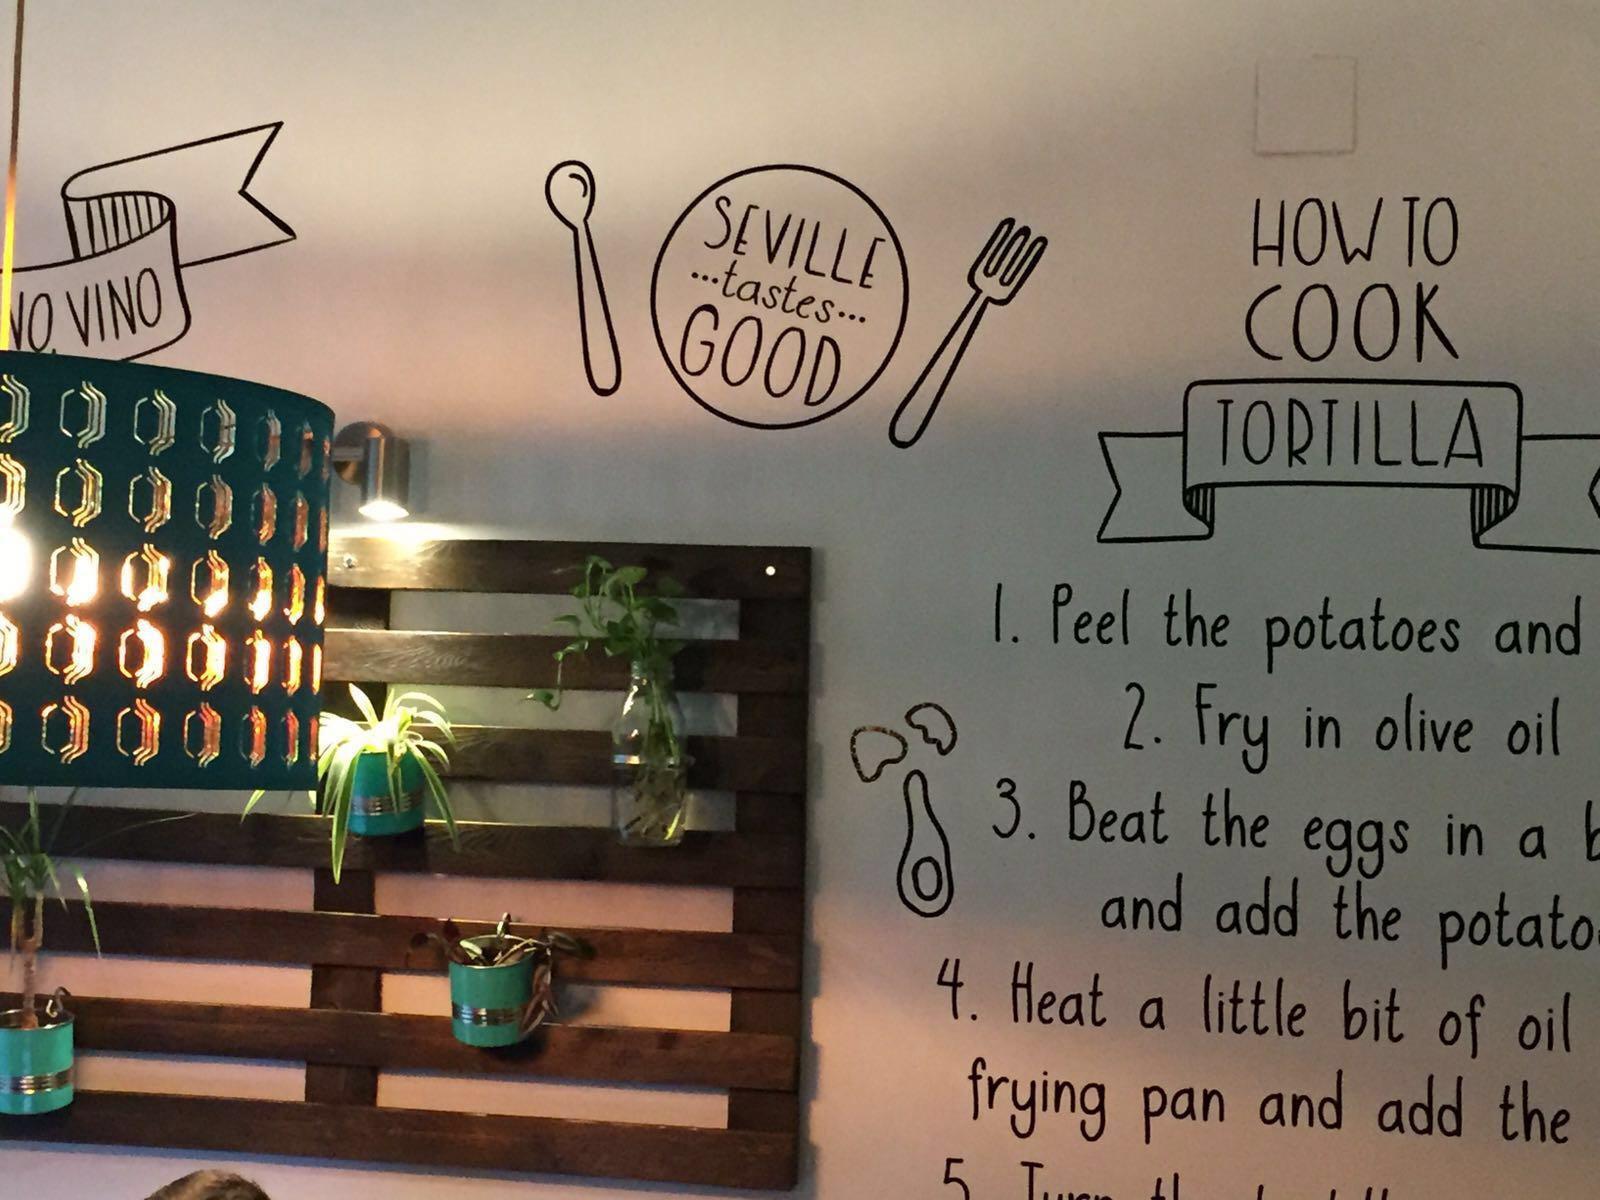 VINO
SEVILLE
...tastes...
GOOD
HOW TO
COOK
TORTILLA
1. Peel the potatoes and
2. Fry in olive oil
3. Beat the eggs in a
and add the
4. Heat a little bit of oil
frying pan and add the
5. Turn